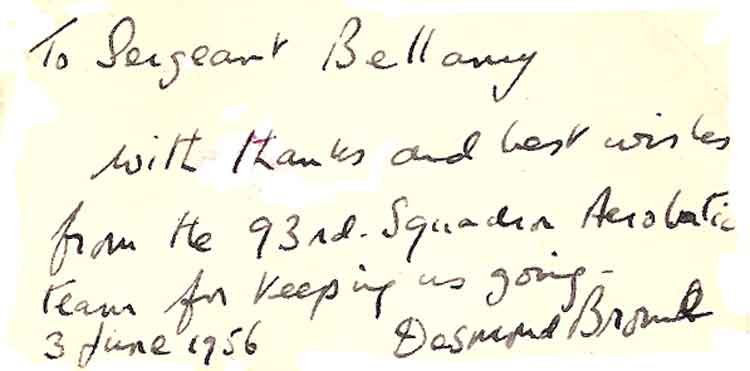 To Sergeant Bellamy
with thanks and best wishes
from the 93rd. Squadron Aerobatic
team for keeping us going -
3 June 1956 Desmond